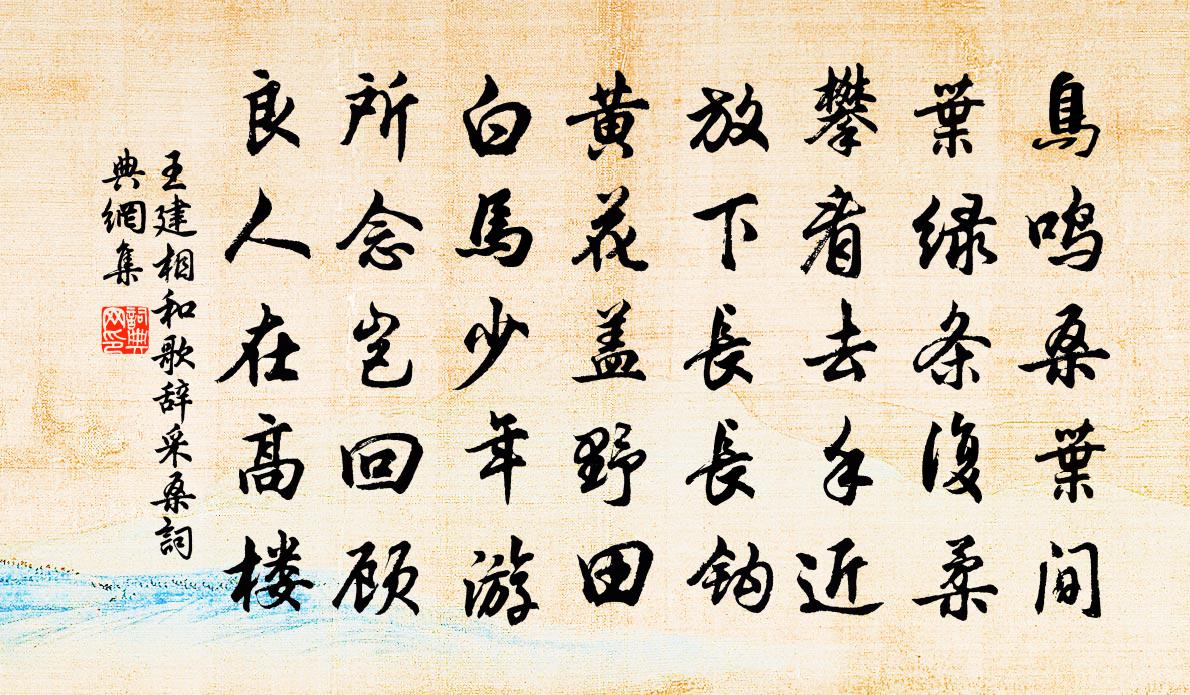 鳥鸣桑葉间
葉绿条復柔
攀看去手近
放下長長钩
黄花盖野田
白馬少年游
所念岂回顾
良人在高楼
王建相和歌辞采桑詞
典網集
詞典网印